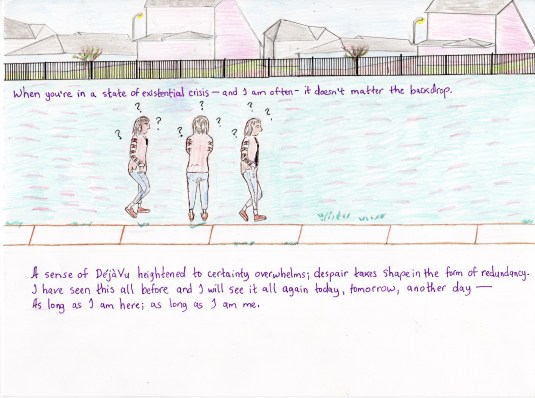 When you're in a state of existential crisis — and I am often - it doesn't matter the backdrop.
? ? ? ? ? ? ? ? ?
A sense of DéjàVu heightened to certainty overwhelms; despair takes shape in the form of redundancy.
I have seen this all before and I will see it all again today, tomorrow, another day —
As long as I am here; as long as I am me.